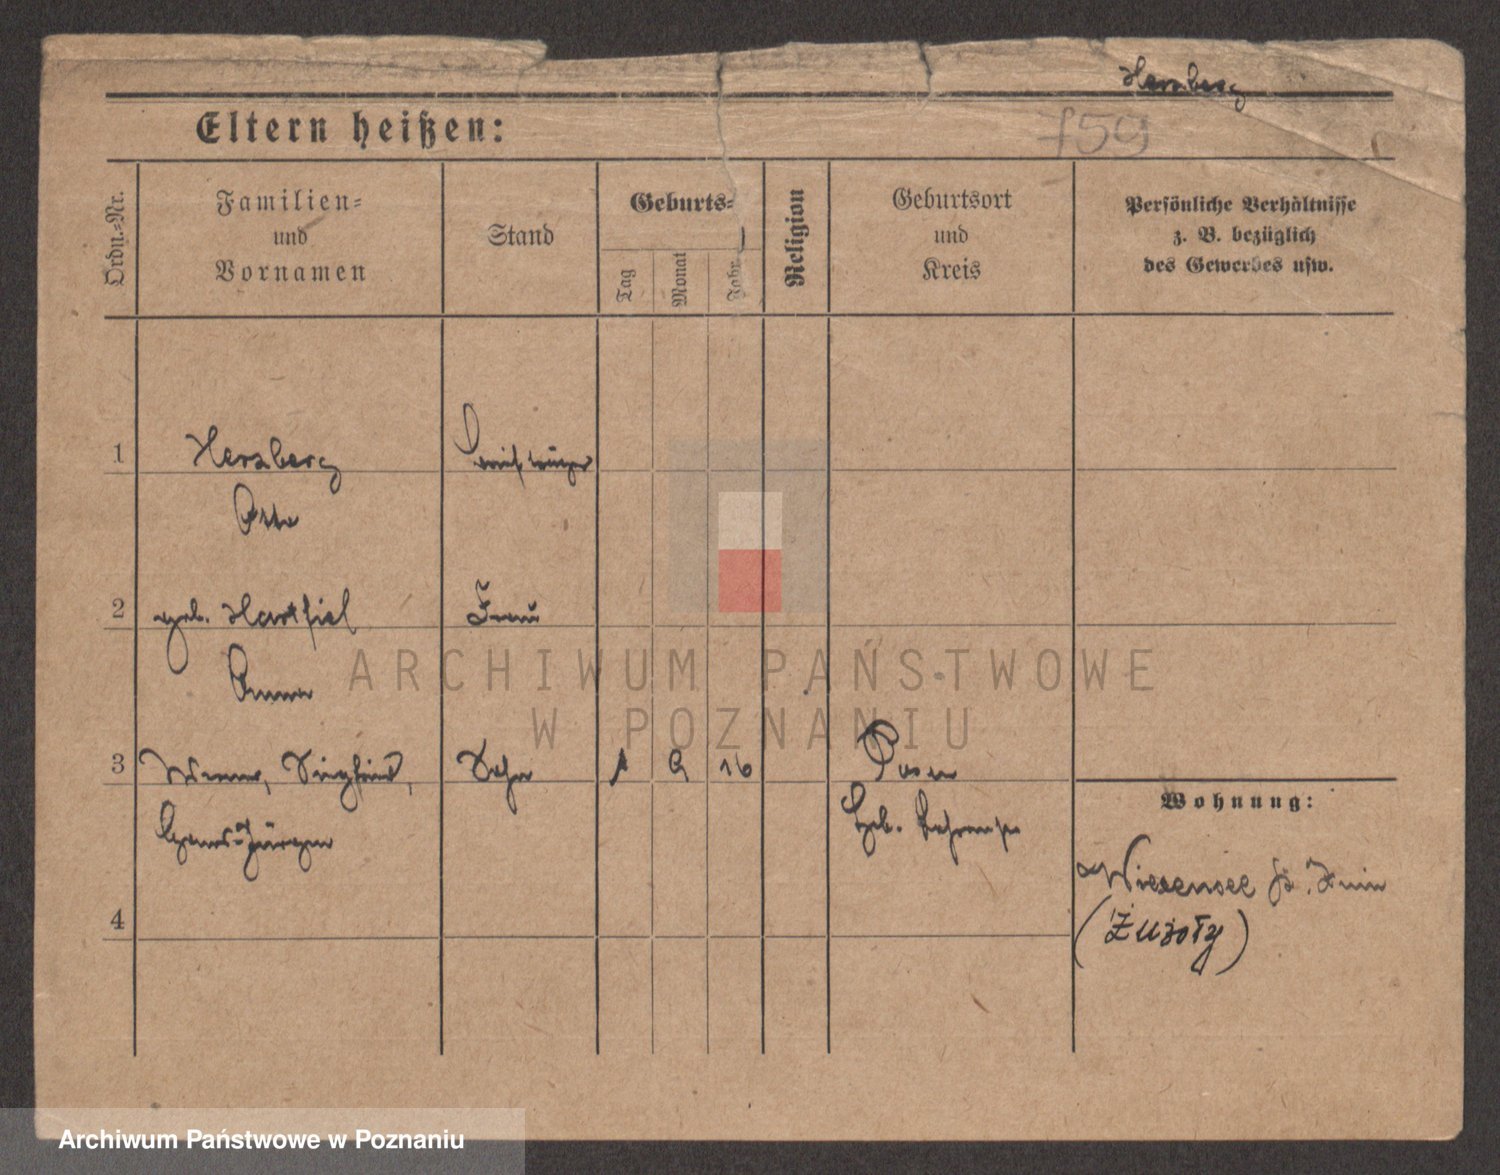 Herzberg
759
Eltern heißen:
Ordn.=Nr.
Familien=
und
Vornamen
Stand
Geburts=
Tag
Monat
Jahr
Religion
Geburtsort
und
Kreis
Persönliche Verhältnisse
z. B. bezüglich
des Gewerbes usw.
1 Herzberg
Otto
2 geb. Hartfiel Frau
Anna
3 Werner, Siegfried, Sohn 1 9 16 Posen
Hans=Jürgen Geb.
Wohnung:
Wiesensee Kr. Znin
(Żużoły)
4
ARCHIWUM PAŃSTWOWE
W POZNANIU
Archiwum Państwowe w Poznaniu